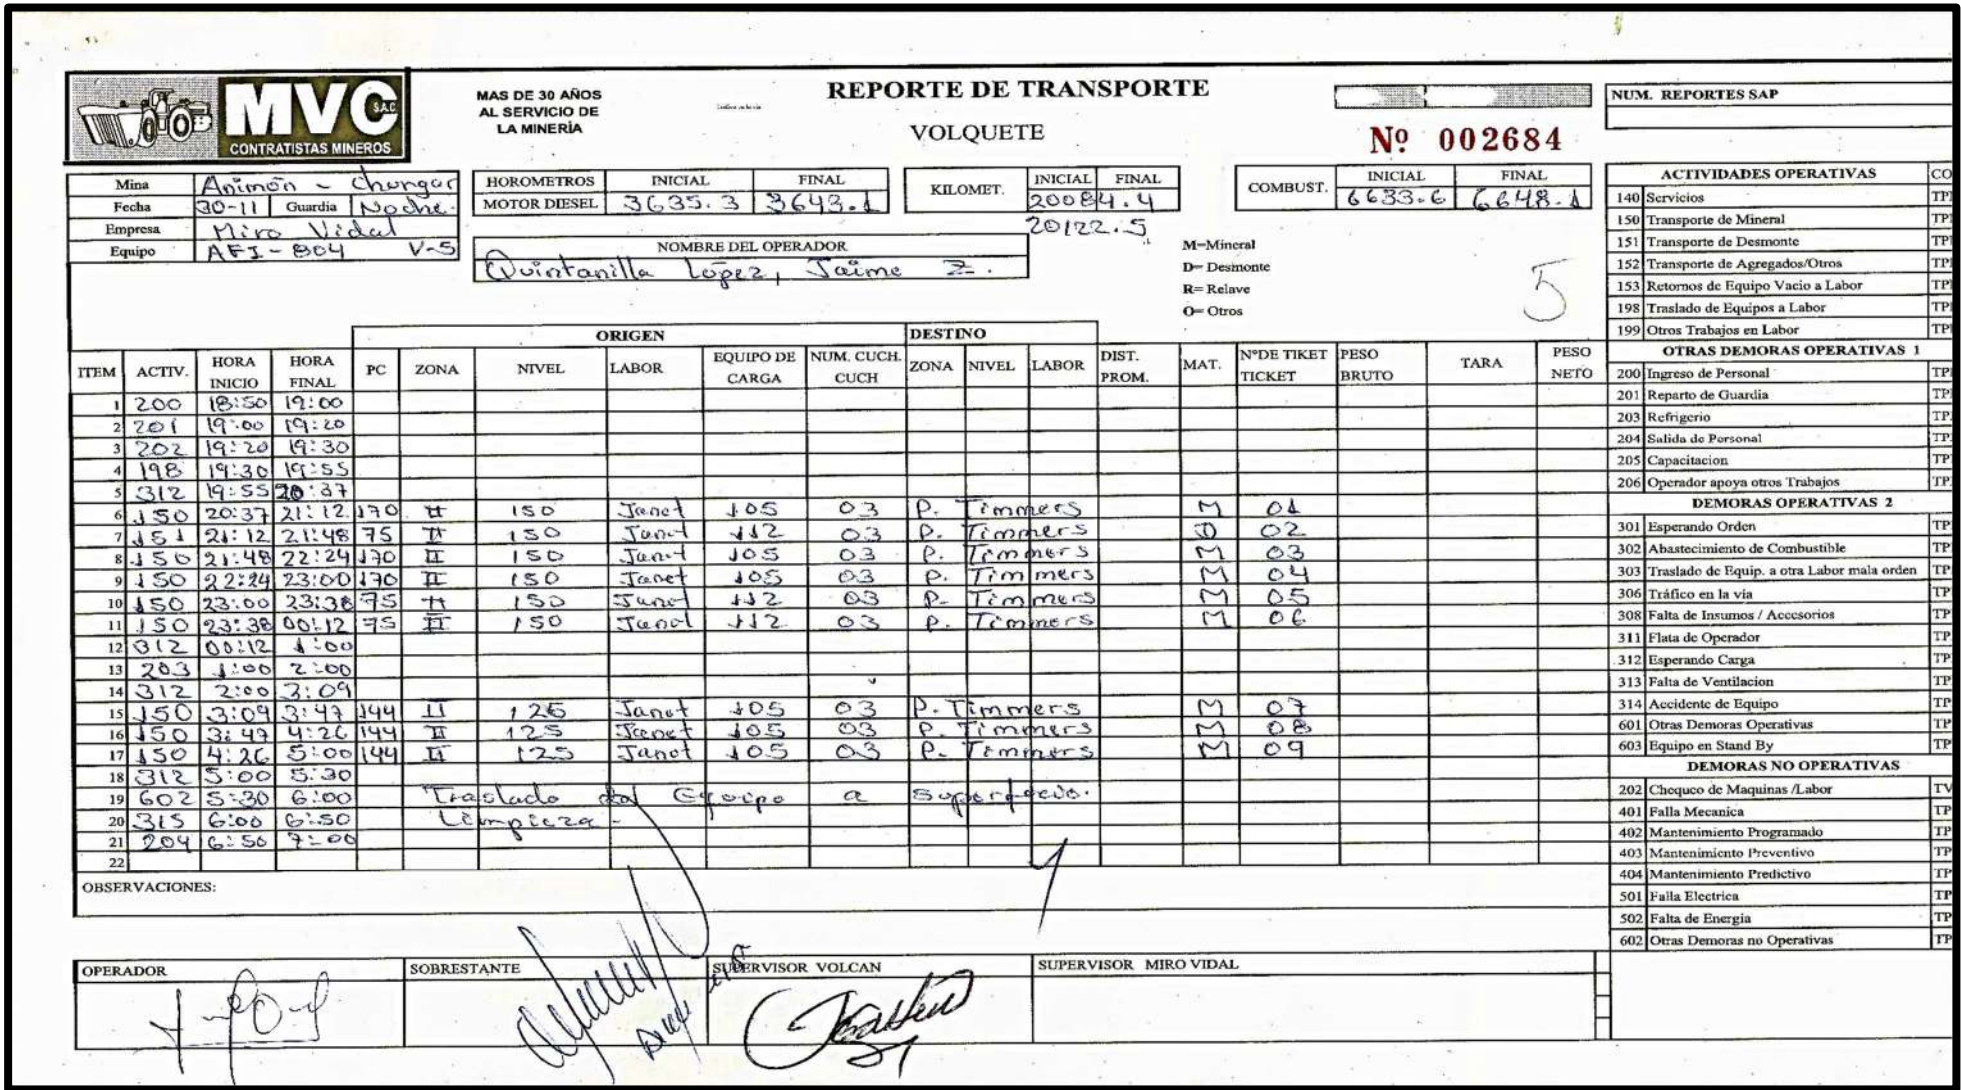 MVC S.A.C.
CONTRATISTAS MINEROS
MAS DE 30 AÑOS
AL SERVICIO DE
LA MINERÌA
REPORTE DE TRANSPORTE
VOLQUETE
Nº 002684
NUM. REPORTES SAP
Mina Animón - Chungar
Fecha 30-11 Guardia Noche.
Empresa Miro Vidal
Equipo AFI-804 V-5
HOROMETROS INICIAL FINAL
MOTOR DIESEL 3635.3 3643.1
KILOMET. INICIAL FINAL
20084.4
20122.5
COMBUST. INICIAL FINAL
6633.6 6648.1
NOMBRE DEL OPERADOR
Quintanilla López, Jaime Z.
M=Mineral
D= Desmonte
R= Relave
O= Otros
5
ORIGEN DESTINO
ITEM ACTIV. HORA INICIO HORA FINAL PC ZONA NIVEL LABOR EQUIPO DE CARGA NUM. CUCH. CUCH ZONA NIVEL LABOR DIST. PROM. MAT. NºDE TIKET TICKET PESO BRUTO TARA PESO NETO
1 200 18:50 19:00
2 201 19:00 19:20
3 202 19:20 19:30
4 198 19:30 19:55
5 312 19:55 20:37
6 150 20:37 21:12 170 II 150 Janet 105 03 P. Timmers M 01
7 151 21:12 21:48 75 II 150 Janet 112 03 P. Timmers D 02
8 150 21:48 22:24 170 II 150 Janet 105 03 P. Timmers M 03
9 150 22:24 23:00 170 II 150 Janet 105 03 P. Timmers M 04
10 150 23:00 23:38 75 II 150 Janet 112 03 P. Timmers M 05
11 150 23:38 00:12 75 II 150 Janet 112 03 P. Timmers M 06
12 312 00:12 1:00
13 203 1:00 2:00
14 312 2:00 3:09
15 150 3:09 3:47 144 II 125 Janet 105 03 P. Timmers M 07
16 150 3:47 4:26 144 II 125 Janet 105 03 P. Timmers M 08
17 150 4:26 5:00 144 II 125 Janet 105 03 P. Timmers M 09
18 312 5:00 5:30
19 602 5:30 6:00 Traslado del Equipo a
20 315 6:00 6:50 Limpieza-
21 204 6:50 7:00
22
OBSERVACIONES:
OPERADOR SOBRESTANTE SUPERVISOR VOLCAN SUPERVISOR MIRO VIDAL
ACTIVIDADES OPERATIVAS CO
140 Servicios TP
150 Transporte de Mineral TP
151 Transporte de Desmonte TP
152 Transporte de Agregados/Otros TP
153 Retornos de Equipo Vacio a Labor TP
198 Traslado de Equipos a Labor TP
199 Otros Trabajos en Labor TP
OTRAS DEMORAS OPERATIVAS 1
200 Ingreso de Personal TP
201 Reparto de Guardia TP
203 Refrigerio TP
204 Salida de Personal TP
205 Capacitacion TP
206 Operador apoya otros Trabajos TP
DEMORAS OPERATIVAS 2
301 Esperando Orden TP
302 Abastecimiento de Combustible TP
303 Traslado de Equip. a otra Labor mala orden TP
306 Tráfico en la via TP
308 Falta de Insumos / Accesorios TP
311 Flata de Operador TP
312 Esperando Carga TP
313 Falta de Ventilacion TP
314 Accidente de Equipo TP
601 Otras Demoras Operativas TP
603 Equipo en Stand By TP
DEMORAS NO OPERATIVAS
202 Chequeo de Maquinas /Labor TV
401 Falla Mecanica TP
402 Mantenimiento Programado TP
403 Mantenimiento Preventivo TP
404 Mantenimiento Predictivo TP
501 Falla Electrica TP
502 Falta de Energia TP
602 Otras Demoras no Operativas TP